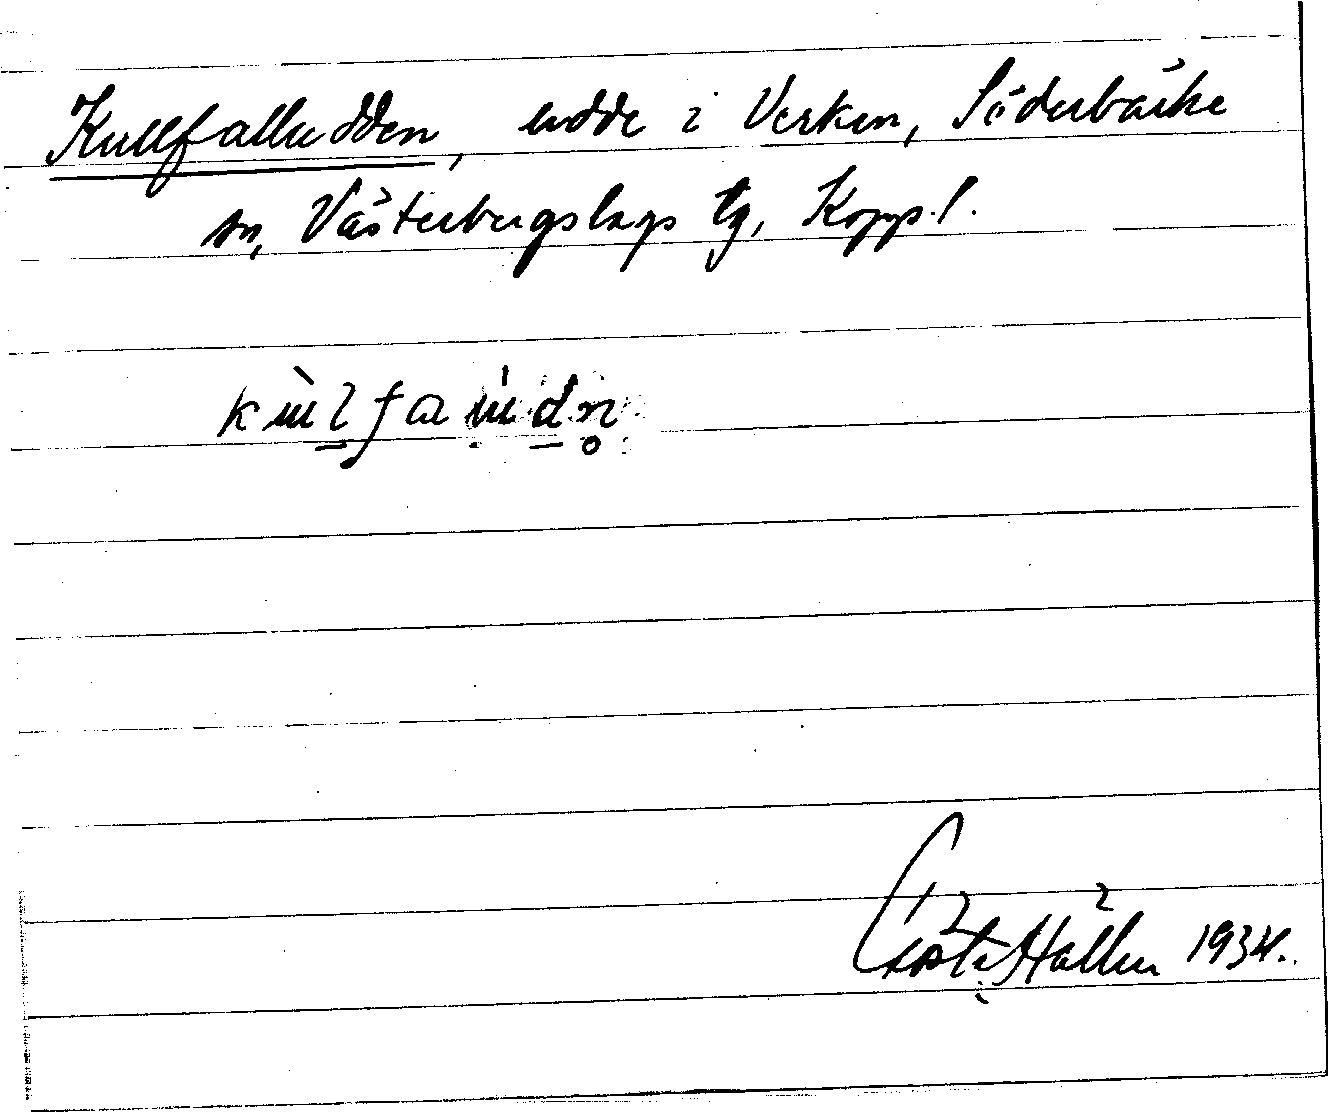 Kullfalludden, udde i Verken, Söderbärke
sn, Västerbergslags tg, Kopp. l.
Gösta Hållén 1934.